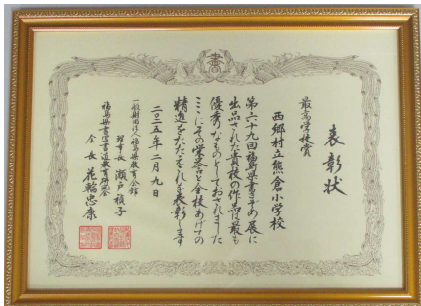 書
表彰状
最高学校賞
西郷村立熊倉小学校
第六十九回福島県書きぞめ展に
出品された貴校の作品は最も
優秀なものとしておされました
ここにその栄誉と全校あげての
精進をたたえこれを表彰します
二〇二五年二月九日
一般財団法人福島県教育会館
理事長 瀬戸禎子
福島県書写書道教育研究会
会長 花輪忠崇